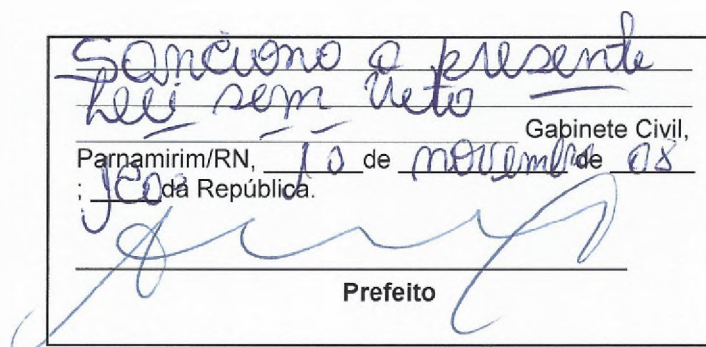 Sanciono a presente
Lei sem veto
Gabinete Civil,
Parnamirim/RN, 10 de novembro de 08
; da República.
Prefeito